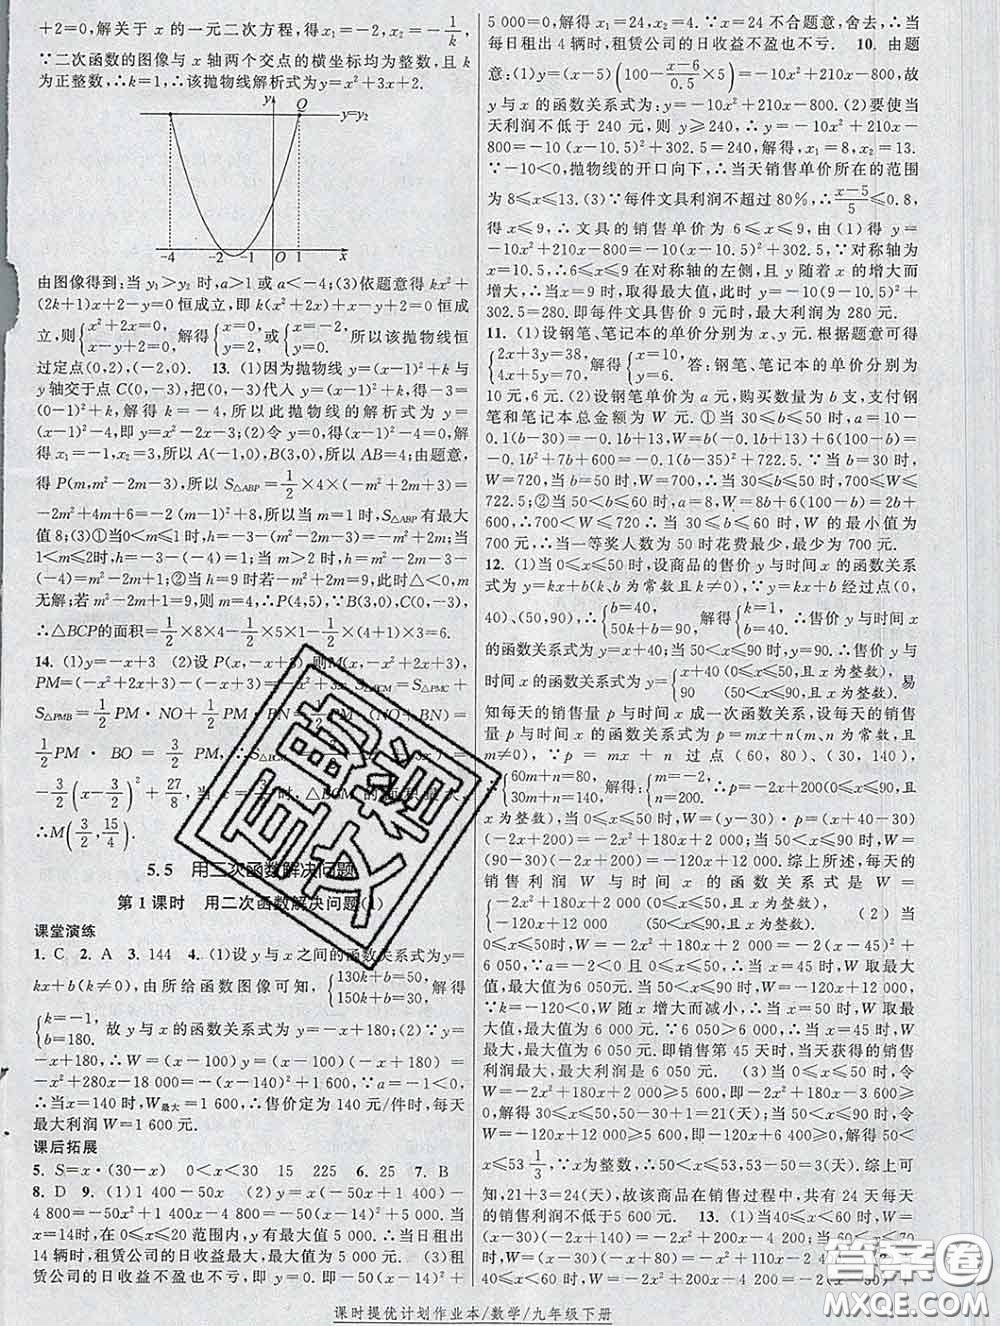 +2=0,解关于 x 的一元二次方程,得 x₁=-2,x₂=-1/k.
∵二次函数的图像与 x 轴两个交点的横坐标均为整数,且 k
为正整数,∴k=1,∴该抛物线解析式为 y=x²+3x+2.
y Q
y=y₂
-4 -2 -1 O 1 x
由图像得到:当 y₁>y₂ 时,a>1 或 a<-4;(3)依题意得 kx²+
(2k+1)x+2-y=0 恒成立,即 k(x²+2x)+x-y+2=0 恒成
立,则{x²+2x=0, x-y+2=0. 解得{x=0, y=2, 或{x=-2, y=0. 所以该抛物线恒
过定点(0,2),(-2,0). 13. (1)因为抛物线 y=(x-1)²+k 与
y 轴交于点 C(0,-3),把(0,-3)代入 y=(x-1)²+k,得-3=
(0-1)²+k,解得 k=-4,所以此抛物线的解析式为 y=
(x-1)²-4,即 y=x²-2x-3;(2)令 y=0,得(x-1)²-4=0,解得
x₁=-1,x₂=3,所以 A(-1,0),B(3,0),所以 AB=4;由题意,
得 P(m,m²-2m-3),所以 S△ABP=1/2×4×(-m²+2m+3)=
-2m²+4m+6=-2(m-1)²+8,所以当 m=1 时,S△ABP有最大
值 8;(3)①当 0<m≤1 时,h=-3-(m²-2m-3)=-m²+2m;当
1<m≤2时,h=-3-(-4)=1;当 m>2 时,h=m²-2m-3-
(-4)=m²-2m+1;②当 h=9 时若-m²+2m=9,此时△<0,m
无解;若 m²-2m+1=9,则 m=4,∴P(4,5),∵B(3,0),C(0,-3),
∴△BCP的面积=1/2×8×4-1/2×5×1-1/2×(4+1)×3=6.
14. (1)y=-x+3 (2)设 P(x,-x+3),则M(x,-x²+2x+3),
PM=(-x²+2x+3)-(-x+3)=-x²+3x,S△BCM=S△PMC+
S△PMB=1/2PM·NO+1/2PM·BN=1/2PM(NO+BN)=
1/2PM·BO=3/2PM,∴S△BCM
-3/2(x-3/2)²+27/8,当 x=3/2时,△BCM的面积最大,
∴M(3/2,15/4).
5.5 用二次函数解决问题
第 1 课时 用二次函数解决问题(1)
课堂演练
1. C 2. A 3. 144 4. (1)设 y 与 x 之间的函数关系式为 y=
kx+b(k≠0),由所给函数图像可知,{130k+b=50, 150k+b=30, 解得
{k=-1, b=180. 故 y 与 x 的函数关系式为 y=-x+180;(2)∵y=
-x+180,∴W=(x-100)y=(x-100)(-x+180)=
-x²+280x-18 000=-(x-140)²+1 600,
∴当x=140 时,W最大=1 600,∴售价定为 140 元/件时,每天
最大利润 W=1 600 元.
课后拓展
5. S=x·(30-x) 0<x<30 15 225 6. 25 7. B
8. D 9. (1)1 400-50x (2)y=x(-50x+1 400)-
4 800=-50x²+1 400x-4 800=-50(x-14)²+5 000.当
x=14时,在 0≤x≤20 范围内,y 有最大值 5 000,∴当日租出
14 辆时,租赁公司的日收益最大,最大值为5 000 元. (3)租
赁公司的日收益不盈也不亏,即 y=0.即-50(x-14)²+
5 000=0,解得 x₁=24,x₂=4,∵x=24 不合题意,舍去,∴当
每日租出 4 辆时,租赁公司的日收益不盈也不亏. 10. 由题
意:(1)y=(x-5)(100-(x-6)/0.5×5)=-10x²+210x-800,故
y 与 x 的函数关系式为:y=-10x²+210x-800.(2)要使当
天利润不低于 240 元,则 y≥240,∴y=-10x²+210x-
800=-10(x-10.5)²+302.5=240,解得,x₁=8,x₂=13.
∵-10<0,抛物线的开口向下,∴当天销售单价所在的范围
为 8≤x≤13.(3)∵每件文具利润不超过 80%,∴(x-5)/5≤0.8,
得 x≤9,∴文具的销售单价为 6≤x≤9,由(1)得 y=
-10x²+210x-800=-10(x-10.5)²+302.5,∵对称轴为
x=10.5,∴6≤x≤9 在对称轴的左侧,且 y 随着 x 的增大而
增大,∴当x=9 时,取得最大值,此时 y=-10(9-10.5)²+
302.5=280.即每件文具售价 9 元时,最大利润为 280 元.
11. (1)设钢笔、笔记本的单价分别为 x、y元.根据题意可得
{2x+3y=38, 4x+5y=70, 解得{x=10, y=6. 答:钢笔、笔记本的单价分别为
10 元,6 元.(2)设钢笔单价为 a 元,购买数量为 b 支,支付钢
笔和笔记本总金额为 W 元.①当 30≤b≤50 时,a=10-
0.1(b-30)=-0.1b+13,W=b(-0.1b+13)+6(100-b)=
-0.1b²+7b+600=-0.1(b-35)²+722.5.∵当 b=30 时,
W=720,当 b=50 时,W=700,∴当 30≤b≤50 时,700≤W≤
722.5;②当 50<b≤60 时,a=8,W=8b+6(100-b)=2b+
600,∴700<W≤720,∴当 30≤b≤60 时,W 的最小值为
700 元,∴当一等奖人数为 50 时花费最少,最少为 700 元.
12. (1)当 0≤x≤50 时,设商品的售价 y与时间 x 的函数关系
式为 y=kx+b(k、b 为常数且 k≠0),∵y=kx+b 经过点(0,
40)、(50,90),∴{b=40, 50k+b=90, 解得{k=1, b=40. ∴售价 y 与时间
x 的函数关系式为 y=x+40;当 50<x≤90 时,y=90,∴售价 y 与
时间 x 的函数关系式为 y={x+40 (0≤x≤50,且 x 为整数), 90 (50<x≤90,且 x 为整数). 易
知每天的销售量 p 与时间 x 成一次函数关系,设每天的销售
量 p 与时间 x 的函数关系式为 p=mx+n(m、n 为常数,且
m≠0),∵p=mx+n 过点(60,80)、(30,140),
∴{60m+n=80, 30m+n=140, 解得{m=-2, n=200. ∴p=-2x+200(0≤x≤90,且
x 为整数),当 0≤x≤50 时,W=(y-30)·p=(x+40-30)
(-2x+200)=-2x²+180x+2 000;当 50<x≤90 时,W=(90-30)
(-2x+200)=-120x+12 000.综上所述,每天的
销售利润 W 与时间 x 的函数关系式是 W=
{-2x²+180x+2 000 (0≤x≤50,且x为整数), -120x+12 000 (50<x≤90,且x为整数). (2)当
0≤x≤50时,W=-2x²+180x+2 000=-2(x-45)²+6 050,
∵a=-2<0且 0≤x≤50,∴当 x=45 时,W 取最大值,
最大值为6 050元;当 50<x≤90 时,W=-120x+12 000,
∵k=-120<0,W 随 x 增大而减小,∴当 x=50 时,W取最
大值,最大值为6 000 元.∵6 050>6 000,∴当 x=45 时,W
最大,最大值为 6 050 元.即销售第 45 天时,当天获得的销售
利润最大,最大利润是 6 050 元. (3)当 0≤x≤50 时,令
W=-2x²+180x+2 000≥5 600,即-2x²+180x-3 600≥0,
解得 30≤x≤50,50-30+1=21(天);当 50<x≤90 时,令
W=-120x+12 000≥5 600,即-120x+6 400≥0,解得 50<
x≤53 1/3,∵x为整数,∴50<x≤53,53-50=3(天).综上可
知,21+3=24(天),故该商品在销售过程中,共有 24 天每天
的销售利润不低于5 600 元. 13. (1)当40≤x<60 时,W=
(x-30)(-2x+140)=-2x²+200x-4 200;当60≤x≤70
时,W=(x-30)(-x+80)=-x²+110x-2 400. (2)当
40≤x<60时,W=-2x²+200x-4 200=-2(x-50)²+
课时提优计划作业本/数学/九年级下册
互助文档
答案圈